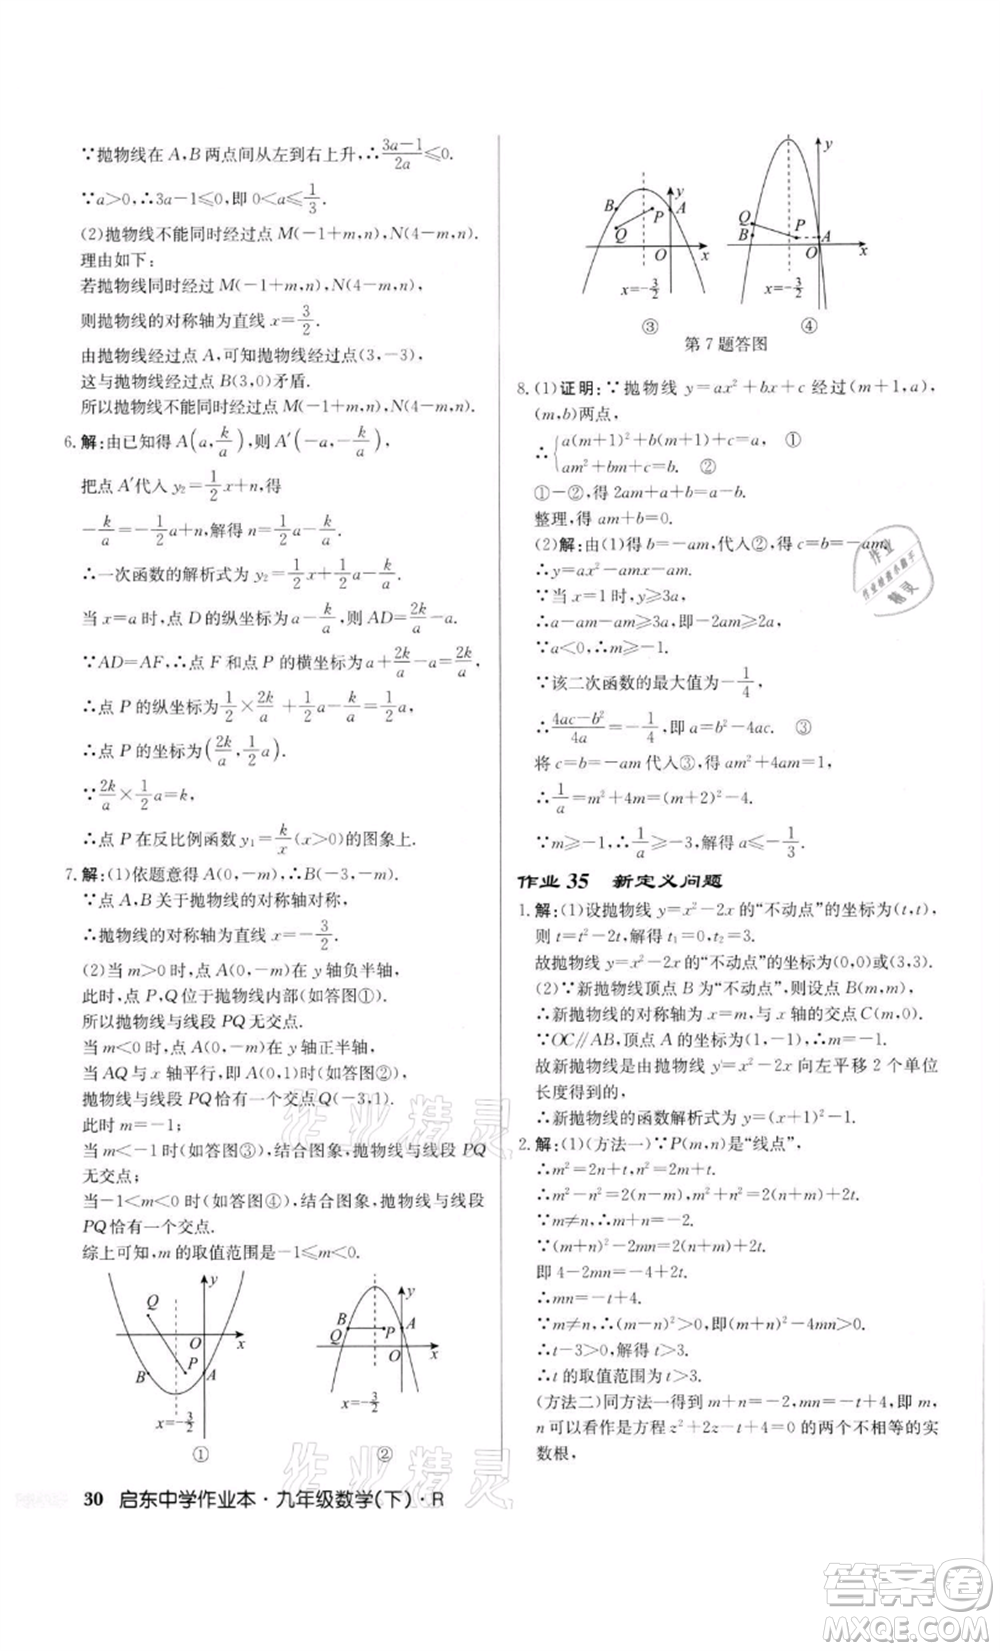 ∵抛物线在 A,B 两点间从左到右上升,∴(3a−1)/(2a)≤0.
∵a>0,∴3a−1≤0,即 0<a≤1/3.
(2)抛物线不能同时经过点 M(−1+m,n),N(4−m,n).
理由如下:
若抛物线同时经过 M(−1+m,n),N(4−m,n),
则抛物线的对称轴为直线 x=3/2.
由抛物线经过点 A,可知抛物线经过点(3,−3),
这与抛物线经过点 B(3,0)矛盾.
所以抛物线不能同时经过点 M(−1+m,n),N(4−m,n).
6.解:由已知得 A(a,k/a),则 A′(−a,−k/a),
把点 A′代入 y₂=1/2x+n,得
−k/a=−1/2a+n,解得 n=1/2a−k/a.
∴一次函数的解析式为 y₂=1/2x+1/2a−k/a.
当 x=a 时,点 D 的纵坐标为 a−k/a,即 AD=2k/a−a.
∵AD=AF,∴点 F 和点 P 的横坐标为 a+2k/a−a=2k/a,
∴点 P 的纵坐标为1/2×2k/a+1/2a−k/a=1/2a.
∴点 P 的坐标为(2k/a,1/2a).
∵2k/a×1/2a=k,
∴点 P 在反比例函数 y₁=k/x(x>0)的图象上.
7.解:(1)依题意得 A(0,−m),∴B(−3,−m).
∵点 A,B 关于抛物线的对称轴对称,
∴抛物线的对称轴为直线 x=−3/2.
(2)当 m>0 时,点 A(0,−m)在 y 轴负半轴,
此时,点 P,Q 位于抛物线内部(如答图①).
所以抛物线与线段 PQ 无交点.
当 m<0 时,点 A(0,−m)在 y 轴正半轴,
当 AQ 与 x 轴平行,即 A(0,1)时(如答图②),
抛物线与线段 PQ 恰有一个交点 Q(−3,1).
此时 m=−1;
当 m<−1 时(如答图③),结合图象,抛物线与线段 PQ
无交点;
当−1<m<0 时(如答图④),结合图象,抛物线与线段
PQ 恰有一个交点.
综上可知,m 的取值范围是−1≤m<0.
y
Q
O
x
P
B
A
x=−3/2
①
y
B
A
Q
P
O
x
x=−3/2
②
30 启东中学作业本·九年级数学(下)·R
y
B
P
A
Q
O
x
x=−3/2
③
y
Q
P
B
A
O
x
x=−3/2
④
第 7 题答图
8.(1)证明:∵抛物线 y=ax²+bx+c 经过(m+1,a),
(m,b)两点,
∴{a(m+1)²+b(m+1)+c=a, ①
am²+bm+c=b. ②
①−②,得 2am+a+b=a−b.
整理,得 am+b=0.
(2)解:由(1)得 b=−am,代入②,得 c=b=−am.
∴y=ax²−amx−am.
∵当 x=1 时,y≥a,
∴a−am−am≥a,∴−2am≥0.
∵a<0,∴m≥−1.
∵该二次函数的最大值为−1/4,
∴(4ac−b²)/(4a)=−1/4,即 a=b²−4ac. ③
将 c=b=−am 代入③,得 a=a²m²+4a²m,
∴1/a=m²+4m=(m+2)²−4.
∵m≥−1,∴1/a≥−3,解得 a≤−1/3.
作业 35 新定义问题
1.解:(1)设抛物线 y=x²−2x 的“不动点”的坐标为(t,t),
则 t=t²−2t,解得 t₁=0,t₂=3.
故抛物线 y=x²−2x 的“不动点”的坐标为(0,0)或(3,3).
(2)∵新抛物线顶点 B 为“不动点”,则设点 B(m,m),
∴新抛物线的对称轴为 x=m,与 x 轴的交点 C(m,0).
∵OC∥AB,顶点 A 的坐标为(1,−1),∴m=−1.
故新抛物线是由抛物线 y=x²−2x 向左平移 2 个单位
长度得到的,
∴新抛物线的函数解析式为 y=(x+1)²−1.
2.解:(1)(方法一)∵P(m,n)是“线点”,
∴m²=2n+t,n²=2m+t.
∴m²−n²=2n−2m,m²+n²=2m+2n+2t.
∵m≠n,∴m+n=−2.
∵(m+n)²−2mn=2(m+n)+2t,
即 4−2mn=−4+2t.
∴mn=−t+4.
∵m≠n,∴(m−n)²>0,
∴−t+4<1
∴t−3>0,解得 t>3.
∴t 的取值范围为 t>3.
(方法二)同方法一得到 m+n=−2,mn=−t+4,即 m,
n 可以看作是方程 z²+2z−t+4=0 的两个不相等的实
数根,
作业精灵
作业精灵
作业
作业检查小助手
精灵
答案卷
MXQE.COM